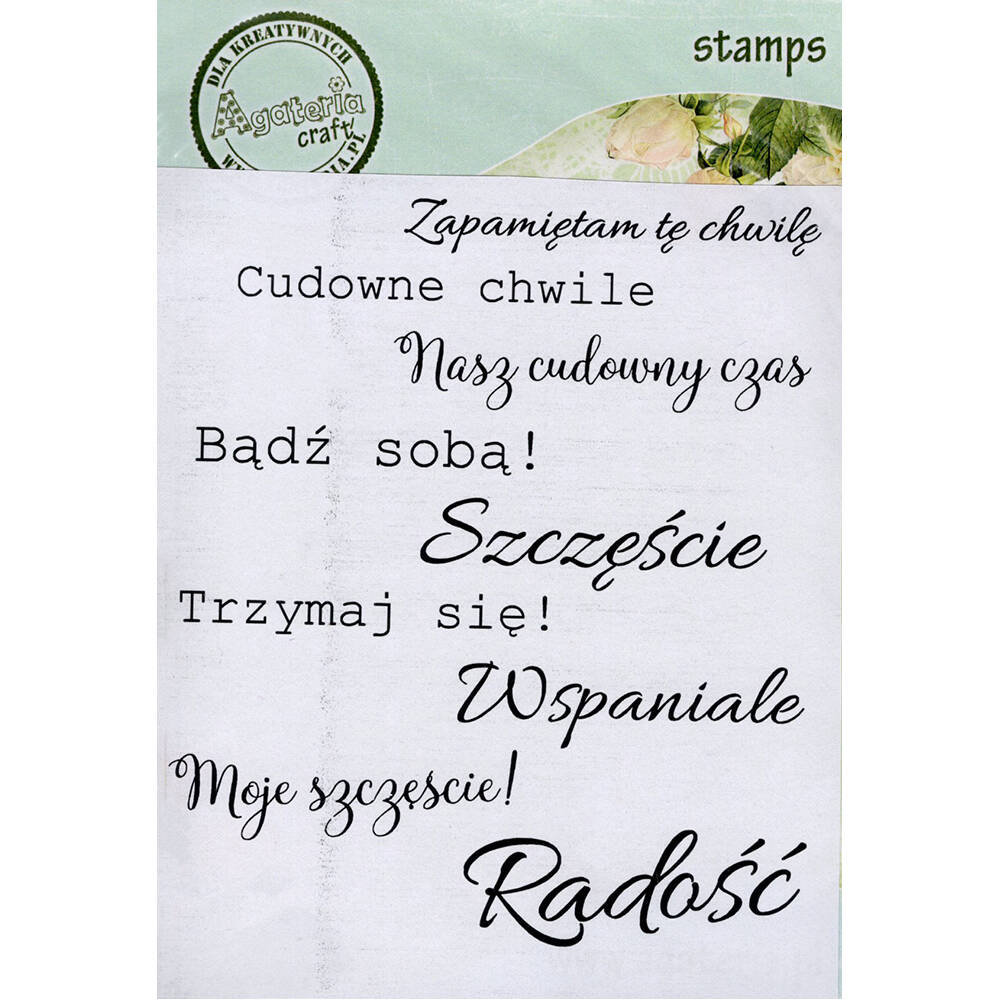 DLA KREATYWNYCH
stamps
Agateria
craft!
Zapamiętam tę chwilę
Cudowne chwile
Nasz cudowny czas
Bądź sobą!
Szczęście
Trzymaj się!
Wspaniale
Moje szczęście!
Radość